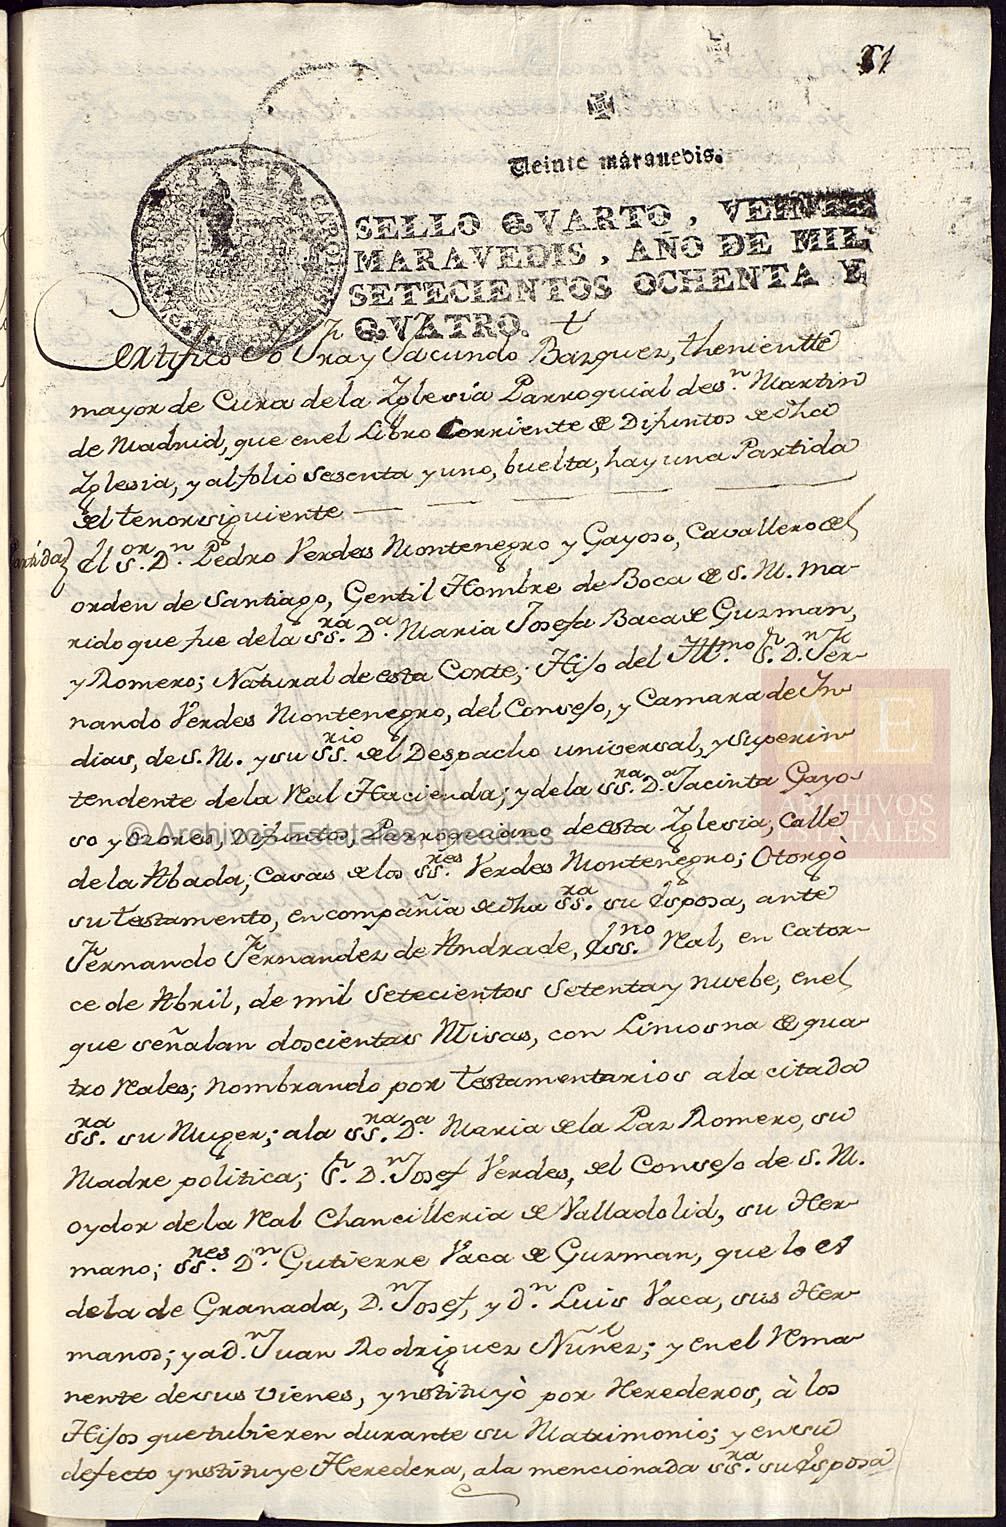 51
Veinte marauedis.
SELLO QVARTO, VEINTE
MARAVEDIS, AÑO DE MIL
SETECIENTOS OCHENTA Y
QVATRO.
Certifico Yo Fray Facundo Bazquez, thenientte
mayor de Cura de la Yglesia Parroquial de Sn. Martin
de Madrid, que en el Libro Corriente de Difuntos de dha
Yglesia, y al folio sesenta y uno, buelta, hay una Partida
del tenor siguiente
Partida} El Sor. Dn. Pedro Verdes Montenegro y Gayoso, Cavallero del
orden de Santiago, Gentil Hombre de Boca de S. M. ma-
rido que fue de la SSra. Da. Maria Josefa Baca de Guzman,
y Romero; Natural de esta Corte; Hijo del Illmo. Sr. Dn. Fer-
nando Verdes Montenegro, del Consejo, y Camara de In-
dias, de S. M. y su SSrio. del Despacho universal, y superin-
tendente de la Real Hacienda; y de la SSra. Da. Jacinta Gayo-
so y Ozores, Difuntos, Perroquiano de esta Yglesia, Calle
© Archivos Estatales, mecd.es
AE
ARCHIVOS
ESTATALES
de la Abada, casas de los SSres. Verdes Montenegro; Otorgò
su testamento, en compañia de dha SSra. su Esposa, ante
Fernando Fernandez de Andrade, Essno. Real, en Cator-
ce de Abril, de mil setecientos setenta y nuebe, en el
que señalan doscientas Misas, con Limosna de qua-
tro Reales; nombrando por testamentarios a la citada
SSra. su Muger; a la SSra. Da. Maria de la Paz Romero, su
Madre politica; Sr. Dn. Josef Verdes, del Consejo de S. M.
oydor de la Real Chancilleria de Valladolid, su Her-
mano; SSres. Dn. Gutierre Vaca de Guzman, que lo es
de la de Granada, Dn. Josef, y Dn. Luis Vaca, sus Her-
manos; y a Dn. Juan Rodriguez Nuñez; y en el Rema-
nente de sus vienes, ynstituyò por Herederos, à los
Hijos que tubieren durante su Matrimonio; y en su
defecto ynstituye Heredera, a la mencionada SSra. su Esposa